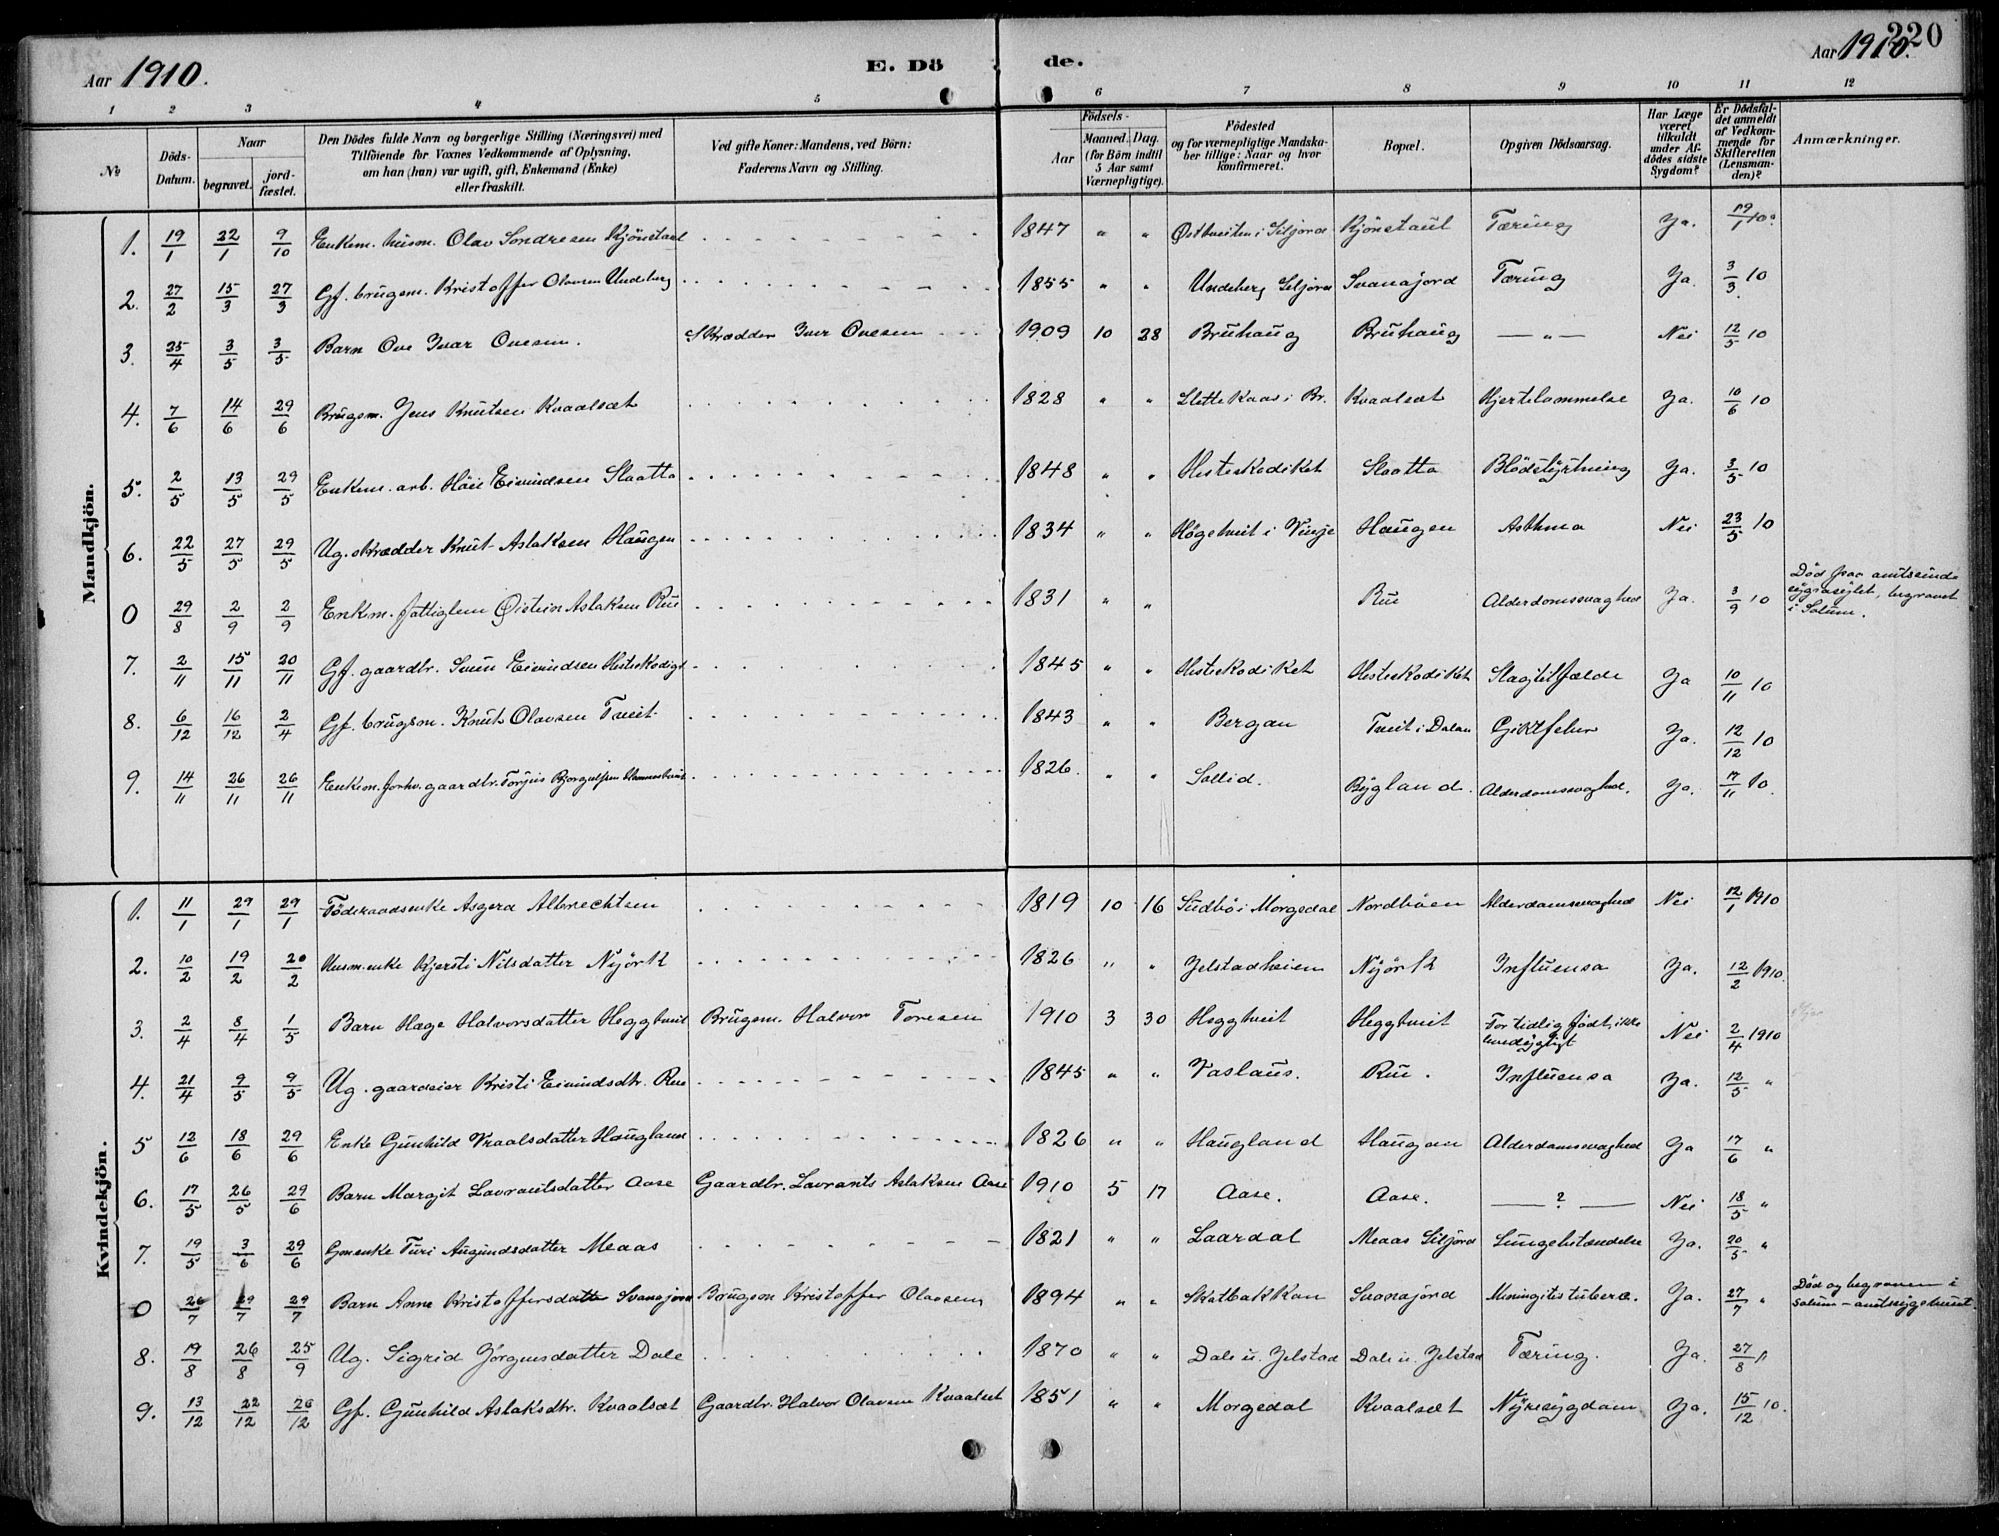 220
Aar 1910. E. Dö de. Aar 1910.
1 2 3 4 5 6 7 8 9 10 11 12
№ Döds-Datum. Naar begravet. jordfæstet. Den Dödes fulde Navn og borgerlige Stilling (Næringsvei) med Tilföiende for Voxnes Vedkommende af Oplysning, om han (hun) var ugift, gift, Enkemand (Enke) eller fraskilt. Ved gifte Koner: Mandens, ved Börn: Faderens Navn og Stilling. Födsels- Aar Maaned. Dag. (for Börn indtil 5 Aar samt Værnepligtige). Födested og for værnepligtige Mandskaber tillige: Naar og hvor konfirmeret. Bopæl. Opgiven Dödsaarsag. Har Læge været tilkaldt under Afdödes sidste Sygdom? Er Dödsfaldet anmeldt af Vedkommende for Skifteretten (Lensmanden)? Anmærkninger.
Mandkjön.
1. 19/1 22/1 9/10 Enkem. husm. Olav Sondresen Kjönstaul 1847 " " Østtveiten i Siljord Kjönstaul Tæring Ja. 19/1 10.
2. 27/2 15/3 27/3 Gf. brugsm. Kristoffer Olavsen Undeberg 1855 " " Undeberg Siljord Svanajord Tæring Ja. 3/3 10
3. 25/4 3/5 3/5 Barn Ove Ivar Ovesen. Skrædder Iver Ovesen 1909 10 28 Bruhaug Bruhaug — " — Nei 12/5 10
4. 7/6 14/6 29/6 Brugsm. Jens Knutsen Kvaalsæt 1828 " " Slettekaas i Br. Kvaalsæt Hjertelammelse Ja. 10/6 10
5. 2/5 13/5 29/5 Enkem. arb. Håie Eivindsen Slaatta 1848 " " Hesteskodiket Slaatta Blödstyrtning Ja. 3/5 10
6. 22/5 27/5 29/5 Ug. skrædder Knut Aslaksen Haugen 1834 " " Høgetveit i Vinje Haugen Asthma Nei 23/5 10
0 29/8 2/9 2/9 Enkem. fattiglem Øistein Aslaksen Rui 1831 " " Rui Alderdomssvaghed Ja. 3/9 10 Död paa amtssindssygeasylet, begravet i Solum.
7. 2/11 15/11 20/11 Gf. gaardbr. Svein Eivindsen Hesteskodiget 1845 " " Hesteskodiket Hesteskodiket Slagtilfælde Ja 10/11 10
8. 6/12 16/12 2/4 Gf. brugsm. Knut Olavsen Tveit 1843 " " Bergan Tveit i Dalan Giktfeber Ja. 12/12 10
9. 14/11 26/11 26/11 Enkem. forhv. gaardbr. Torjus Bjorgulfsen 1826. " " Sollid. Bygland. Alderdomssvaghed. Ja. 17/11 10.
Kvindekjön.
1. 11/1 29/1 29/1 Föderaadsenke Asgerd Albrechtsen 1819 10 16 Sudbö i Morgedal Nordböen Alderdomssvaghed Nei 12/1 1910
2. 10/2 19/2 20/2 Husm.enke Kjersti Nilsdatter Nyörk 1826 " " Jelstadheien Nyörk Influensa Ja. 12/2 1910.
3. 2/4 8/4 1/5 Barn Hæge Halvorsdatter Heggtveit Brugsm. Halvor Toresen 1910 3 30 Heggtveit Heggtveit For tidlig født, ikke levedygtigt Nei 2/4 1910
4. 21/4 9/5 9/5 Ug. gaardeier Kristi Eivindsdtr. Rui 1845 " " Vaslaus. Rui. Influensa Ja. 12/5 "
5 12/6 18/6 29/6 Enke Gunhild Vraalsdatter Haugland 1826 " " Haugland Haugan Alderdomssvaghed Ja 17/6 "
6. 17/5 26/5 29/6 Barn Margit Lavrantsdatter Aase Gaardbr. Lavrants Aslaksen Aase 1910 5 17 Aase. Aase. — ? — Nei 18/5 "
7. 19/5 3/6 29/6 Gmenke Turi Augundsdatter Meaas 1821 " " Laardal Meaas Siljord Lungebetændelse Ja. 20/5 "
0 26/7 29/7 29/7 Barn Anne Kristoffersdatter Svanajord Brugsm Kristoffer Olavsen 1894 " " Skatbakkan Svanajord Miningitis tuberc. Ja. 27/7 " Död og begraven i Solum – amtssygehuset.
8. 19/8 26/8 25/9 Ug. Sigrid Jörgensdatter Dale 1870 " " Dale u. Jelstad Dale u. Jelstad Tæring. Ja. 27/8 "
9. 13/12 22/12 26/12 Gf. Gunhild Aslaksdtr. Kvaalsæt Gaardbr. Halvor Olavsen Kvaalset 1851 " " Morgedal Kvaalsæt Nyresygdom Ja. 15/12 10.